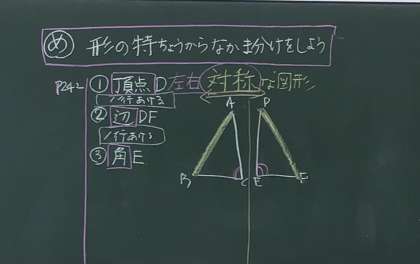 め 形の特ちょうからなかま分けをしよう
P242
① 頂点D 左右対称な図形
1行あける
② 辺DF
1行あける
③ 角E
A D
B C E F